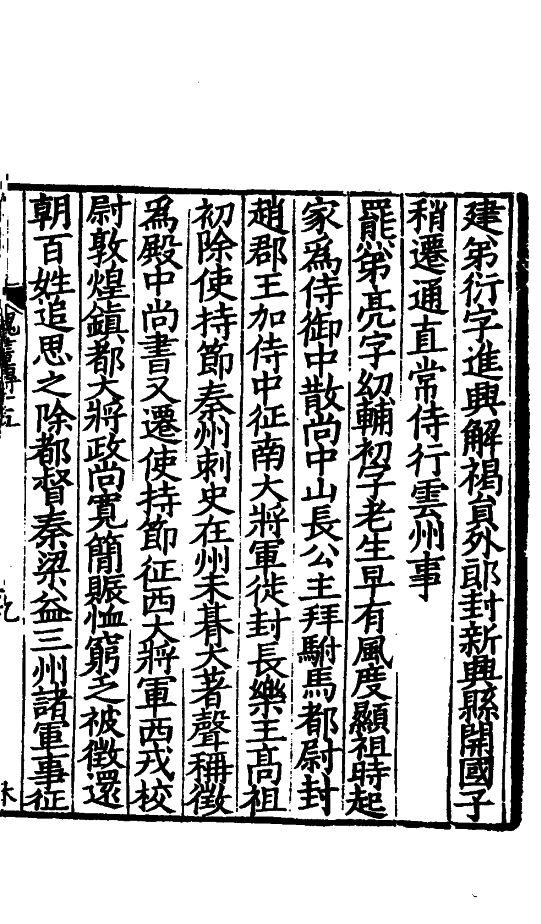 建弟衍字進興解褐員外郎封新興縣開國子
稍遷通直常侍行雲州事
羆弟亮字幼輔初字老生早有風度顯祖時起
家爲侍御中散尚中山長公主拜駙馬都尉封
趙郡王加侍中征南大將軍徙封長樂王高祖
初除使持節秦州刺史在州未朞大著聲稱徵
爲殿中尚書又遷使持節征西大將軍西戎校
尉敦煌鎮都大將政尚寬簡賑恤窮乏被徵還
朝百姓追思之除都督秦梁益三州諸軍事征